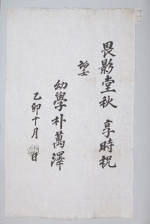 畏影堂秋 享時祝
望
幼學朴萬澤
乙卯十月 日